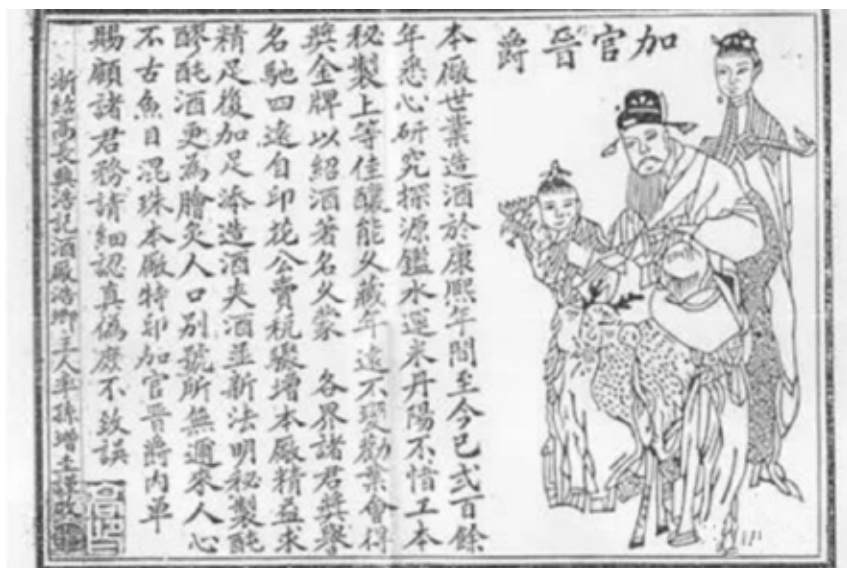 加官晉爵
本廠世業造酒於康熙年間至今已弍百餘
年悉心研究探源鑑水運米丹陽不惜工本
秘製上等佳釀能久藏年遠不變勸業會得
獎金牌以紹酒著名久蒙 各界諸君獎譽
名馳四遠自印花公賣稅驟增本廠精益求
精足復加足添造酒夾酒並新法明秘製酕
醪酕酒更為膾炙人口別號所無邇來人心
不古魚目混珠本廠特印加官晉爵內單
賜顧諸君務請細認真偽庶不致誤
浙紹高長興浩記酒廠浩卿主人率孫增主謹啟